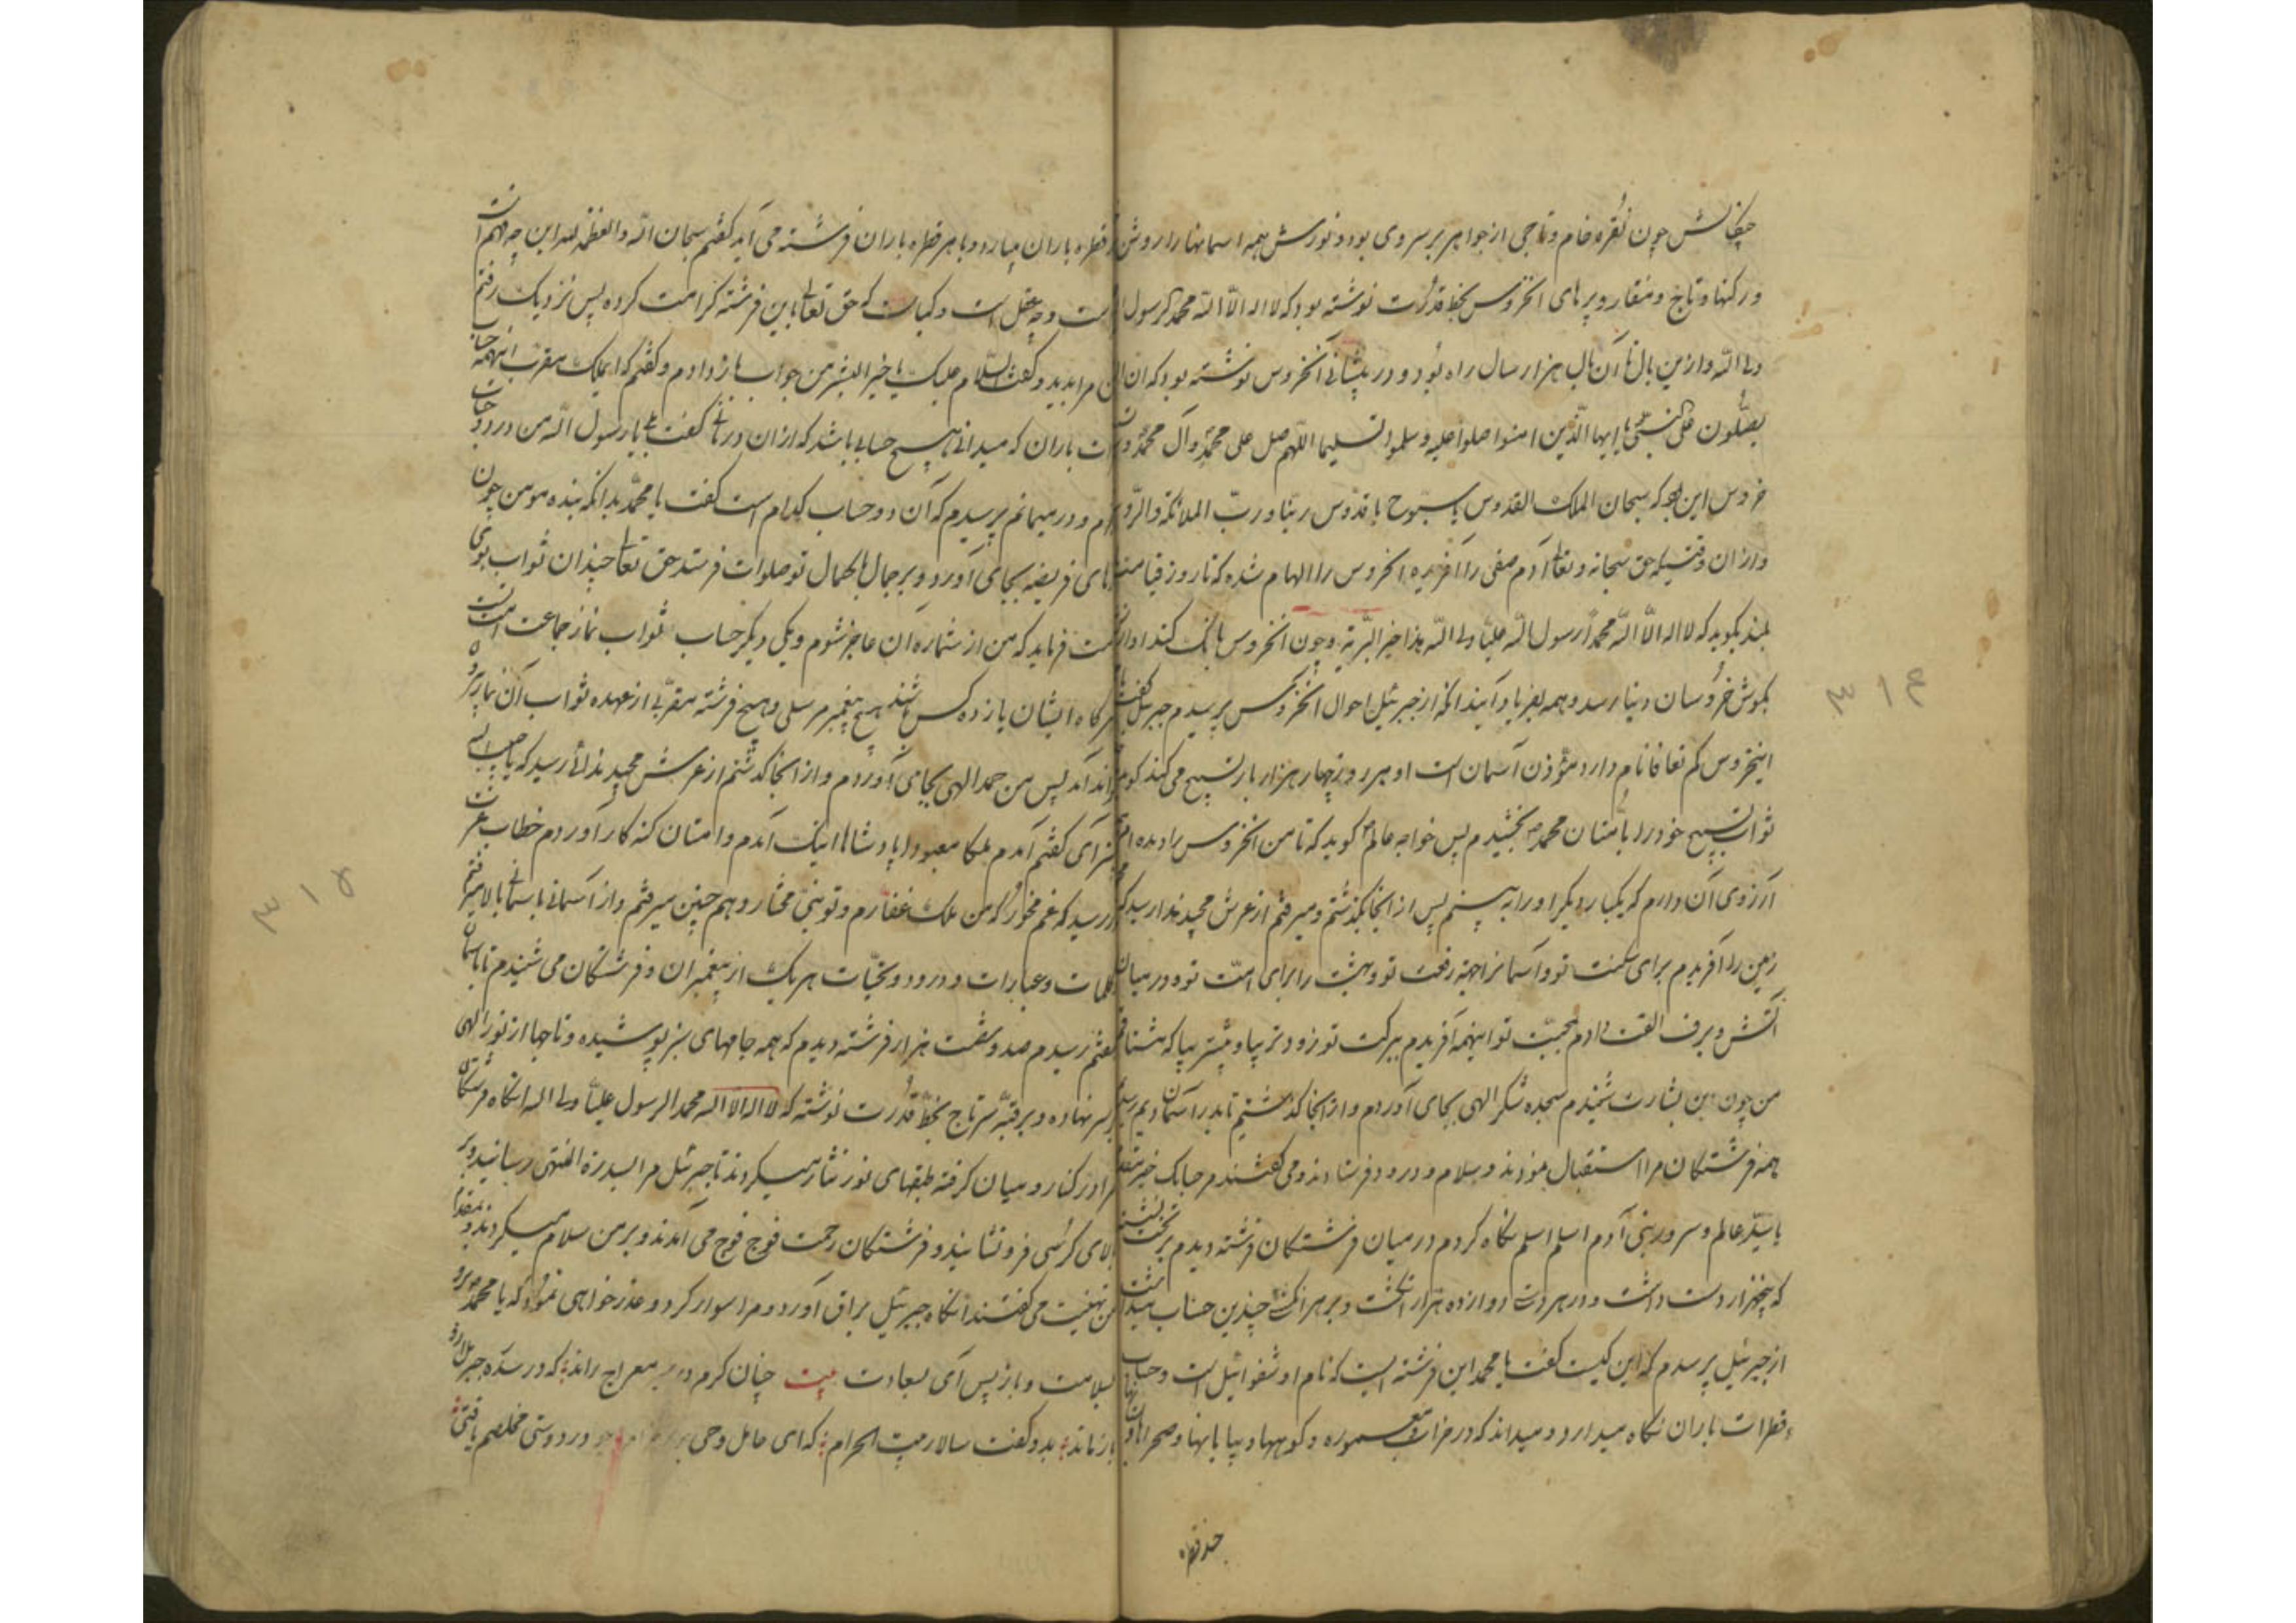 چنگالش چون نقره خام و تاجی از جواهر بر سر وی بود و نورش همه اسمانها را روشن
در کنها و تاج و منقار و پرهای انخروس بخط قدرت نوشته بود که لا اله الا الله محمد رسول
ولی الله و ازین بال تا آن بال هزار سال راه بود و در پیشانی آنخروس نوشته بود که ان
یصلون علی النبی یا ایها الذین امنوا صلوا علیه و سلموا تسلیما اللهم صل علی محمد و آل محمد و
خروس این بود که سبحان الملک القدوس یا سبوح یا قدوس ربنا و رب الملائکة والروح
و ازان وقتیکه حق سبحانه و تعالی آدم صفی را آفریده انخروس را الهام شده که تا روز قیامت
بلند بگوید که لا اله الا الله محمد رسول الله علیا ولی الله هذا خیر البریه و چون انخروس بانک کند اواز
بگوش خروسان دنیا رسد و همه بفریاد آیند انگه از جبرئیل احوال انخروس پرسیدم جبرئیل گفت
اینخروس نام دارد مؤذن آسمان است او هر روز چهار هزار بار تسبیح می کند گوید
ثواب تسبیح خود را بامتان محمد بخشیدم پس خواجه عالم گوید که تا من انخروس را دیده ام
آرزوی آن دارم که یکبار دیگر او را به بینم پس از انجا بگذشتم و میرفتم از عرش مجید ندا رسید که
زمین را آفریدم برای سکنت تو و آسمانرا جهة رفعت تو و بهشت را برای امت تو و در میان
آتش و برف الفت دادم بمحبت تو اینهمه آفریدم ببرکت تو زودتر بیا و پیشتر بیا که
من چون این بشارت شنیدم سجده شکر الهی بجای آوردم و از انجا گذشتیم تا بدر آسمان دیم رسیدم
همه فرشتگان مرا استقبال نمودند و سلام و درود فرستادند و می گفتند مرحبا بک خیر مقدم
یا سید عالم و سرور بنی آدم اسلم اسلم نگاه کردم در میان فرشتگان فرشته دیدم بر تخت نشسته
که پنجهزار دست داشت و در هر دست دوازده هزار انگشت و بر هر انگشت چندین حساب میداشت
از جبرئیل پرسیدم که این کیست گفت یا محمد این فرشته ایست که نام او شفوائیل است و حساب
قطرات باران نگاه میدارد و میداند که در خراب و معموره و کوهها و بیابانها و صحراها
چند قطره
۳۱۴
قطره باران میبارد و با هر قطره باران فرشته می آید گفتم سبحان الله والعظمة لله این چه فهم است
است و چه عقل است و کیاست که حق تعالی باین فرشته کرامت کرده پس نزدیک رفتم
مرا بدید و گفت السلام علیک یا خیر البشر من جواب باز دادم و گفتم که ایملک مقرب اینهمه حساب
باران که میدانی هیچ حسابی باشد که ازان درمانی گفت بلی یا رسول الله من در دو حساب
و درمیمانم پرسیدم که آن دو حساب کدام است گفت یا محمد بدانکه بنده مومن چون
نمازهای فریضه بجای آورد و بر جمال با کمال تو صلوات فرستد حق تعالی چندان ثواب بوی
فرماید که من از شماره آن عاجز شوم و یکی دیگر حساب ثواب نماز جماعت است
هرگاه ایشان یازده کس باشند هیچ پیغمبر مرسلی و هیچ فرشته مقربی از عهده ثواب آن نماز برو
آمد پس من حمد الهی بجای آوردم و از انجا گذشتم از عرش مجید ندائی رسید که یا حبیب
گفتم آمدم ملکا معبودا پادشاها اینک آمدم و امتان گنه کار آوردم خطاب عزت
در رسید که غم مخور که من ملک غفارم و تو نبی مختار و هم چنین میرفتم و از آسمانی باسمانی بالا میرفتم
کلمات و عبارات و درود و تحیات هر یک از پیغمبران و فرشتگان می شنیدم تا باسمان
هفتم رسیدم صد و شصت هزار فرشته دیدم که همه جامهای سبز پوشیده و تاجها از نور الهی
بر سر نهاده و بر قبه سر تاج بخط قدرت نوشته که لا اله الا الله محمد الرسول علیا ولی الله انگاه فرشتگان
مرا در کنار و میان گرفته طبقهای نور نثار میکردند تا جبرئیل مرا بسدرة المنتهی رسانید و بر
بالای کرسی فرو نشانید و فرشتگان رحمت فوج فوج می آمدند و بر من سلام میکردند و بمقدم
من تهنیت می گفتند انگاه جبرئیل براق آورد و مرا سوار کرد و عذر خواهی نمود که یا محمد برو
بسلامت و باز پس آی بسعادت بیت چنان کرم در معراج راند که در سدره جبرئیل ازو
باز ماند بدو گفت سالار بیت الحرام که ای حامل وحی در دوستی مخلصم یافتی
۳۱۵